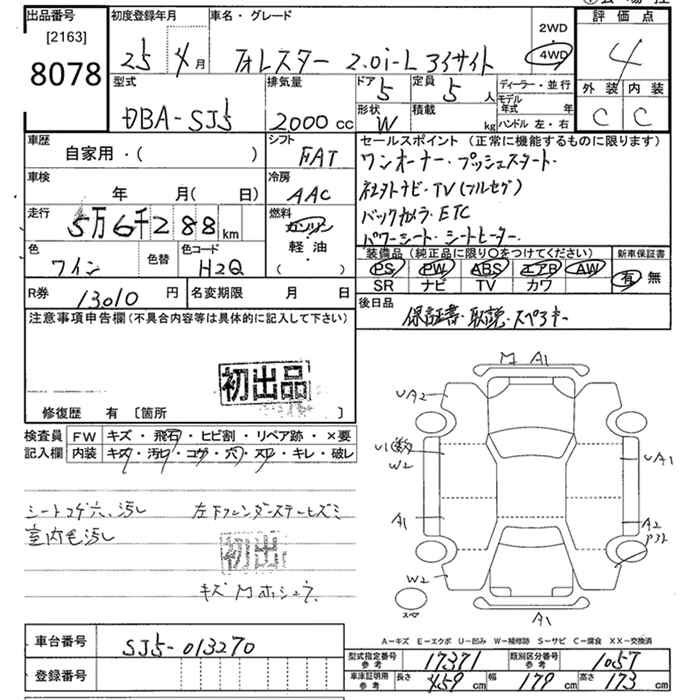 出品番号
[2163]
8078
初度登録年月
25年4月
車名・グレード
フォレスター 2.0i-L アイサイト
2WD
4WD
評価点
4
外装 内装
C C
型式
DBA-SJ5
排気量
2000cc
ドア
5
定員
5人
形状
W
積載
kg
ディーラー・並行
モデル年式 年
ハンドル 左・右
車歴
自家用・( )
シフト
FAT
セールスポイント (正常に機能するものに限ります)
ワンオーナー・プッシュスタート・
社外ナビ・TV(フルセグ)
バックカメラ・ETC
パワーシート・シートヒーター・
車検
年 月( 日)
冷房
AAC
走行
5万6千288km
燃料
ガソリン
軽油
( )
色
ワイン
色替
色コード
H2Q
装備品 (純正品に限り○をつけてください)
PS PW ABS エアB AW
SR ナビ TV カワ
新車保証書
有 無
R券
13010円
名変期限 月 日
後日品
保証書・取説・スペアキー
注意事項申告欄(不具合内容等は具体的に記入して下さい)
初出品
修復歴 有 〔箇所 〕
検査員記入欄
FW キズ・飛石・ヒビ割・リペア跡・×要
内装 キズ・汚レ・コゲ・穴・スレ・キレ・破レ
シートコゲ穴、汚し
室内毛汚し
左下フェンダーステーヒズミ
初出
キズMホシュウ
M A1
UA2
U1(数)
W2
A1
W2
スペ
UA1
A2
P32
A1
A-キズ E-エクボ U-凹み W-補修跡 S-サビ C-腐食 XX-交換済
車台番号
SJ5-013270
登録番号
型式指定番号 参考
17371
類別区分番号 参考
1057
車庫証明用 参考
長さ 459cm
幅 179cm
高さ 173cm